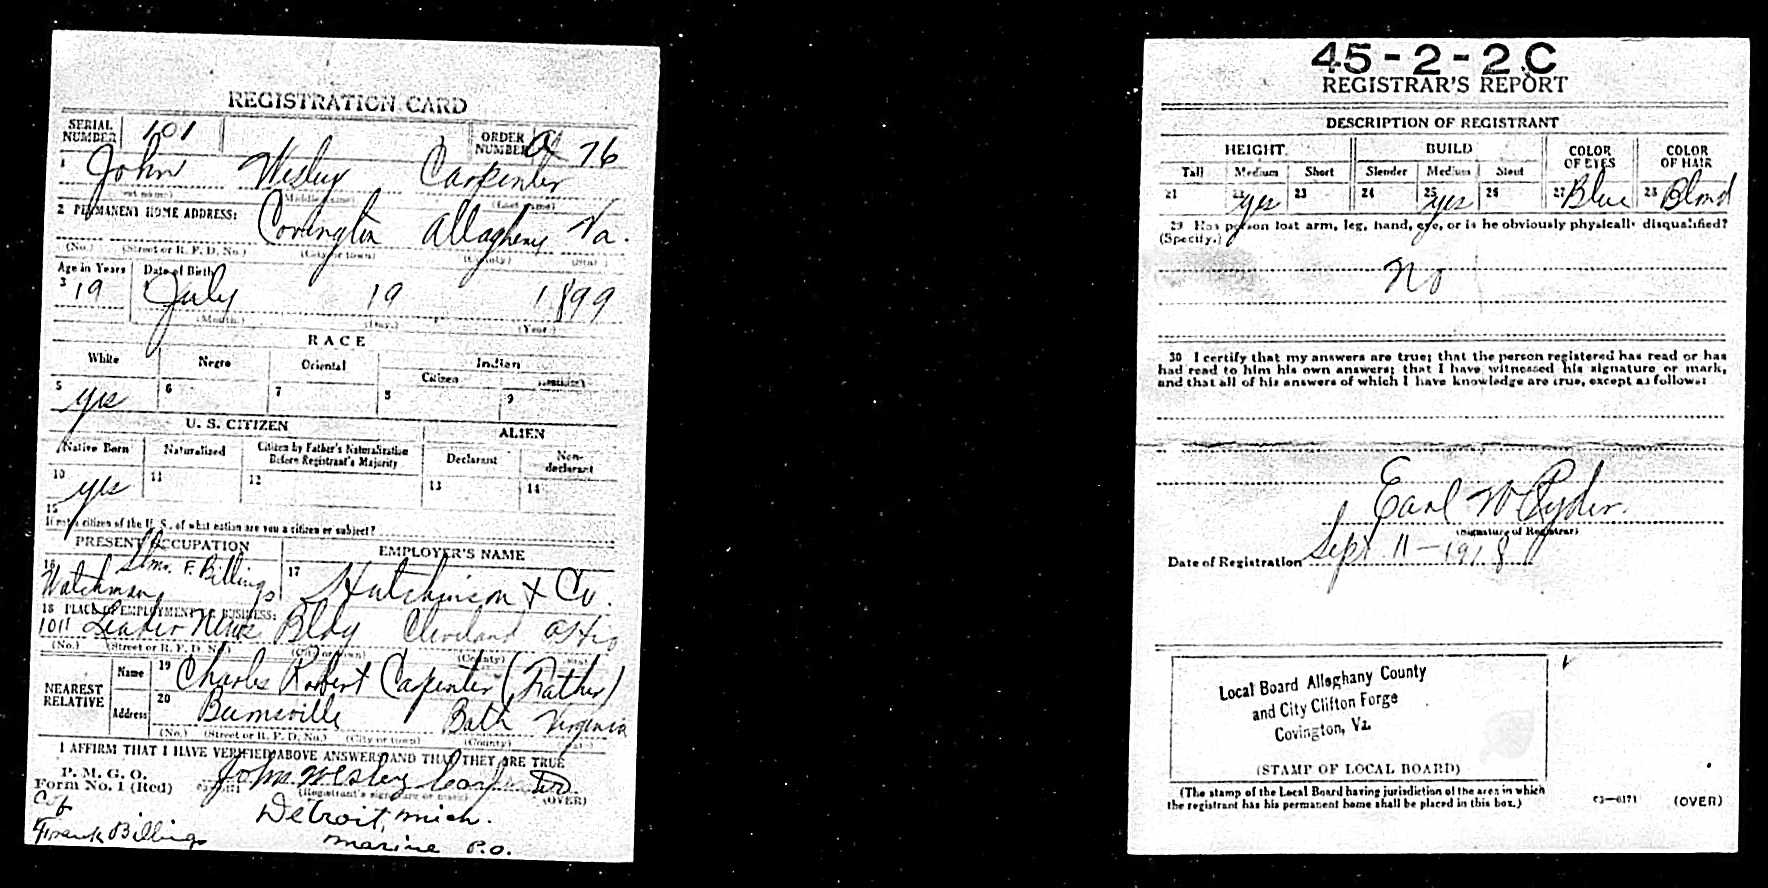 REGISTRATION CARD
SERIAL NUMBER 101 ORDER NUMBER a 76
1 John Wesley Carpenter
(First name) (Middle name) (Last name)
2 PERMANENT HOME ADDRESS: Covington Allagheny Va.
(No.) (Street or R. F. D. No.) (City or town) (County) (State)
Age in Years Date of Birth
3 19 July 19 1899
(Month.) (Day.) (Year.)
RACE
White Negro Oriental Indian
Citizen
5 yes 6 7 8 9
U. S. CITIZEN ALIEN
Native Born Naturalized Citizen by Father's Naturalization Before Registrant's Majority Declarant Non-declarant
10 yes 11 12 13 14
15
If not a citizen of the U. S., of what nation are you a citizen or subject?
PRESENT OCCUPATION EMPLOYER'S NAME
16 Watchman Stmr. F. Billings 17 Hutchinson & Co.
18 PLACE OF EMPLOYMENT OR BUSINESS:
1011 Leader News Bldg Cleveland Ohio
(No.) (Street or R. F. D. No.) (City or town) (County) (State)
NEAREST RELATIVE
Name 19 Charles Robert Carpenter (Father)
Address 20 Burnsville Bath Virginia
(No.) (Street or R. F. D. No.) (City or town) (County) (State)
I AFFIRM THAT I HAVE VERIFIED ABOVE ANSWERS AND THAT THEY ARE TRUE
P. M. G. O.
Form No. 1 (Red) John Wesley Carpenter
(Registrant's signature or mark) (OVER)
Frank Billings
Detroit, Mich.
Marine P.O.
45-2-2C
REGISTRAR'S REPORT
DESCRIPTION OF REGISTRANT
HEIGHT BUILD COLOR OF EYES COLOR OF HAIR
Tall Medium Short Slender Medium Stout
21 22 yes 23 24 25 yes 26 27 Blue 28 Blond
29 Has person lost arm, leg, hand, eye, or is he obviously physically disqualified?
(Specify.)
No
30 I certify that my answers are true; that the person registered has read or has
had read to him his own answers; that I have witnessed his signature or mark,
and that all of his answers of which I have knowledge are true, except as follows:
Earl W Ryder.
(Signature of Registrar)
Date of Registration Sept. 11-1918
Local Board Alleghany County
and City Clifton Forge
Covington, Va.
(STAMP OF LOCAL BOARD)
(The stamp of the Local Board having jurisdiction of the area in which
the registrant has his permanent home shall be placed in this box.)
03—6171 (OVER)